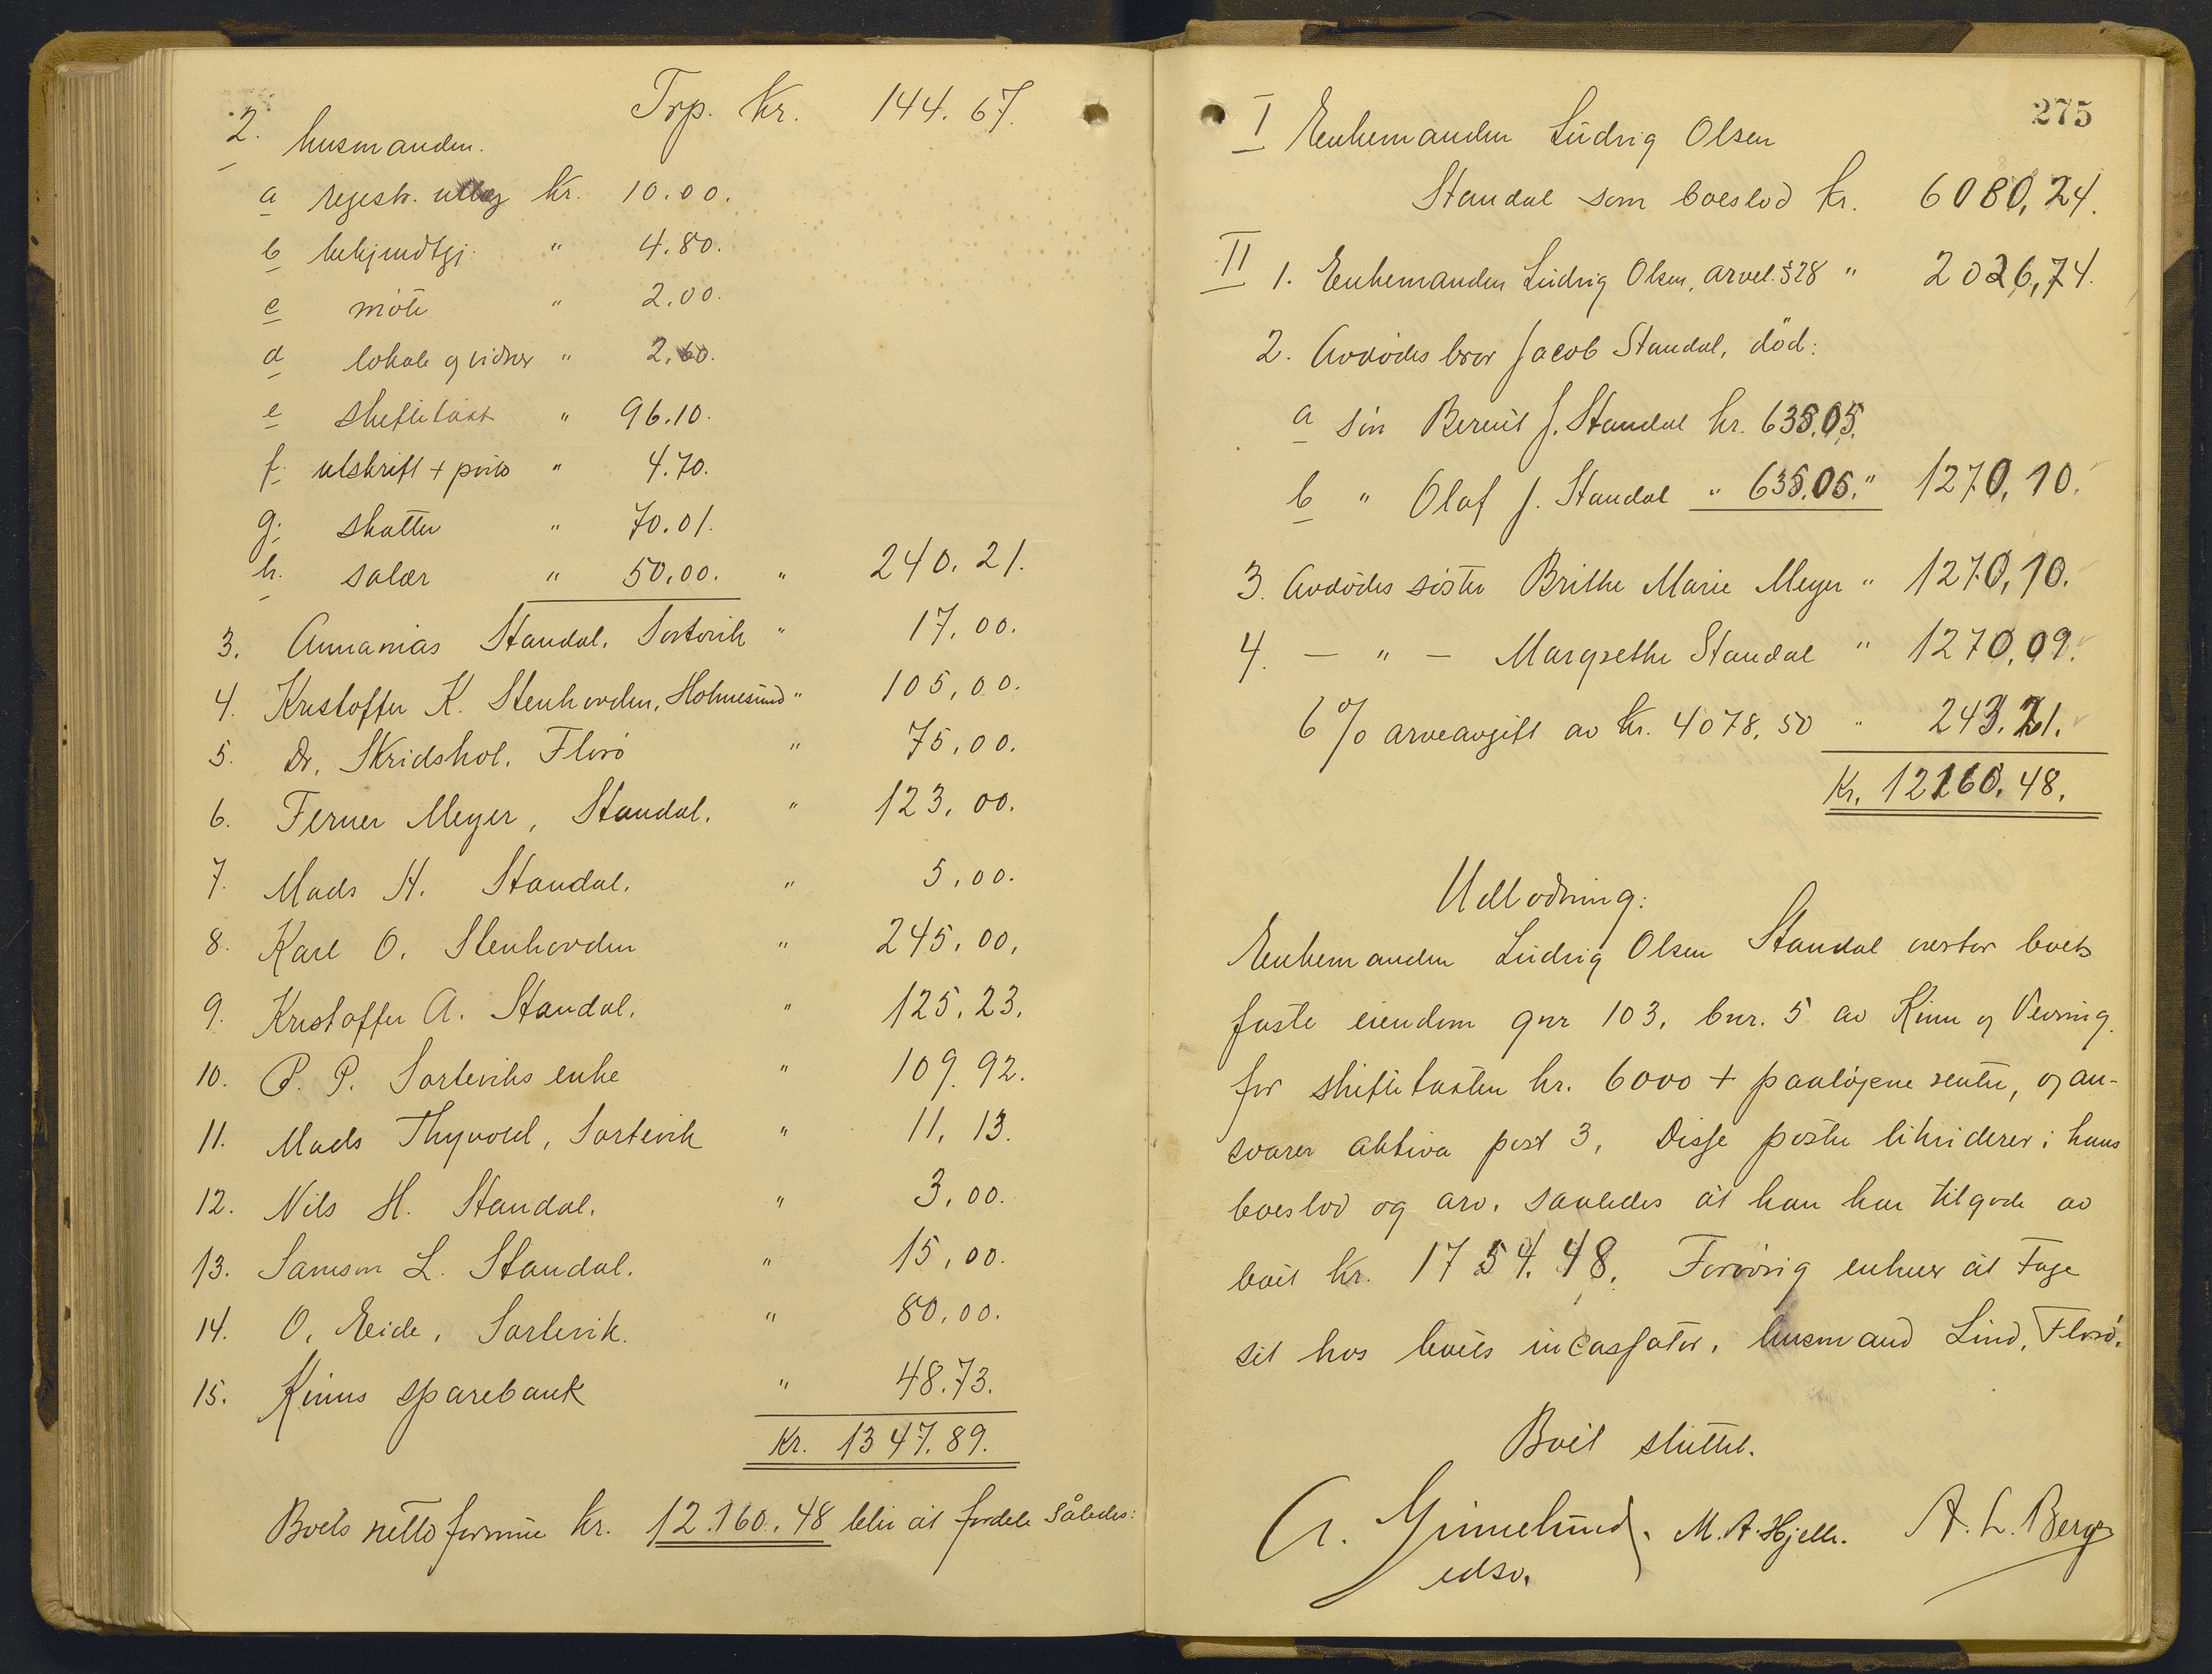 Trp. Kr. 144.67.
2. lensmanden.
a regestr. utlæg kr. 10.00.
b bekjendtgj. " 4.80.
c møte " 2.00.
d lokale og vidner " 2.60.
e skiftetakst " 96.10.
f. utskrift + porto " 4.70.
g. skatter " 70.01.
h. salær " 50.00. " 240.21.
3. Annanias Standal. Sortevik " 17.00.
4. Kristoffer K. Stenhovden, Holmesund " 105,00.
5. Dr. Skridshol. Florø " 75,00.
6. Ferner Meyer, Standal. " 123,00.
7. Mads H. Standal. " 5,00.
8. Karl O. Stenhovden " 245,00.
9. Kristoffer A. Standal. " 125,23.
10. P. P. Sorteviks enke " 109.92.
11. Mads Thyvold, Sortevik " 11,13.
12. Nils H. Standal. " 3,00.
13. Samson L. Standal. " 15,00.
14. O. Eide, Sortevik. " 80,00.
15. Kinns sparebank " 48.73.
Kr. 1347.89.
Boets netto formue kr. 12.160.48 blir at fordele således:
275
I Enkemanden Ludvig Olsen
Standal som boeslod kr. 6080,24.
II 1. Enkemanden Ludvig Olsen, arvel. §28 " 2026,74.
2. Avdødes bror Jacob Standal, død:
a søn Berent J. Standal kr. 635.05.
b " Olaf J. Standal " 635.05. " 1270,10.
3. Avdødes søster Brithe Marie Meyer " 1270,10.
4. — " — Margrethe Standal " 1270,09.
6 % arveavgift av kr. 4078,50 " 243.21.
Kr. 12160.48.
Utlodning:
Enkemanden Ludvig Olsen Standal overtar boets
faste eiendom gnr 103, bnr. 5 av Kinn og Vevring
for skiftetaksten kr. 6000 + paaløpne renter, og an-
svarer aktiva post 3. Disse poster likviderer i hans
boeslod og arv, saaledes at han har tilgode av
boet kr. 1754.48. Forøvrig enhver at tage
sit hos boets incassator, lensmand Lind, Florø.
Boet sluttet.
A. Grimelund. M. A. Hjelle. A. L. Berge
edsv.